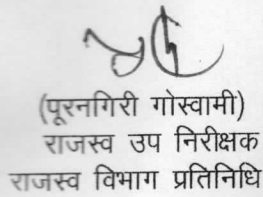 (पूरनगिरी गोस्वामी)
राजस्व उप निरीक्षक
राजस्व विभाग प्रतिनिधि